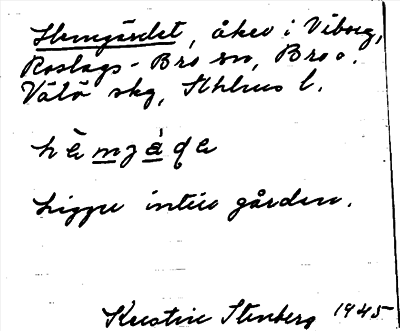 Hemgärdet, åker i Viborg,
Roslags-Bro sn, Bro o.
Vätö skg, Sthlms l.
Ligger intill gården.
Kristine Stenberg 1945